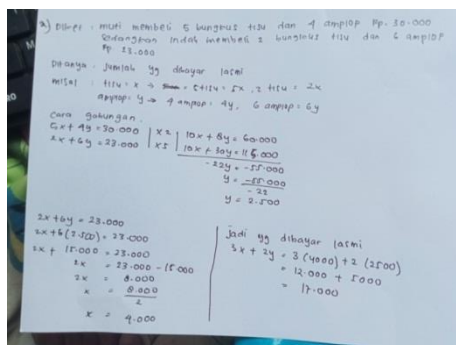 2) Diket : muti membeli 5 bungkus tisu dan 4 amplop Rp. 30.000
Sedangkan indah membeli 2 bungkus tisu dan 6 amplop
Rp. 23.000
Ditanya : Jumlah yg dibayar lasmi
misal : tisu = x → 5 tisu = 5x, 2 tisu = 2x
amplop = y → 4 amplop = 4y, 6 amplop = 6y
Cara gabungan
5x + 4y = 30.000 | x2 | 10x + 8y = 60.000
2x + 6y = 23.000 | x5 | 10x + 30y = 115.000
-22y = -55.000
y = -55.000
-22
y = 2.500
2x + 6y = 23.000
2x + 6 (2.500) = 23.000
2x + 15.000 = 23.000
2x = 23.000 - 15.000
2x = 8.000
x = 8.000
2
x = 4.000
Jadi yg dibayar lasmi
3x + 2y = 3 (4000) + 2 (2500)
= 12.000 + 5000
= 17.000